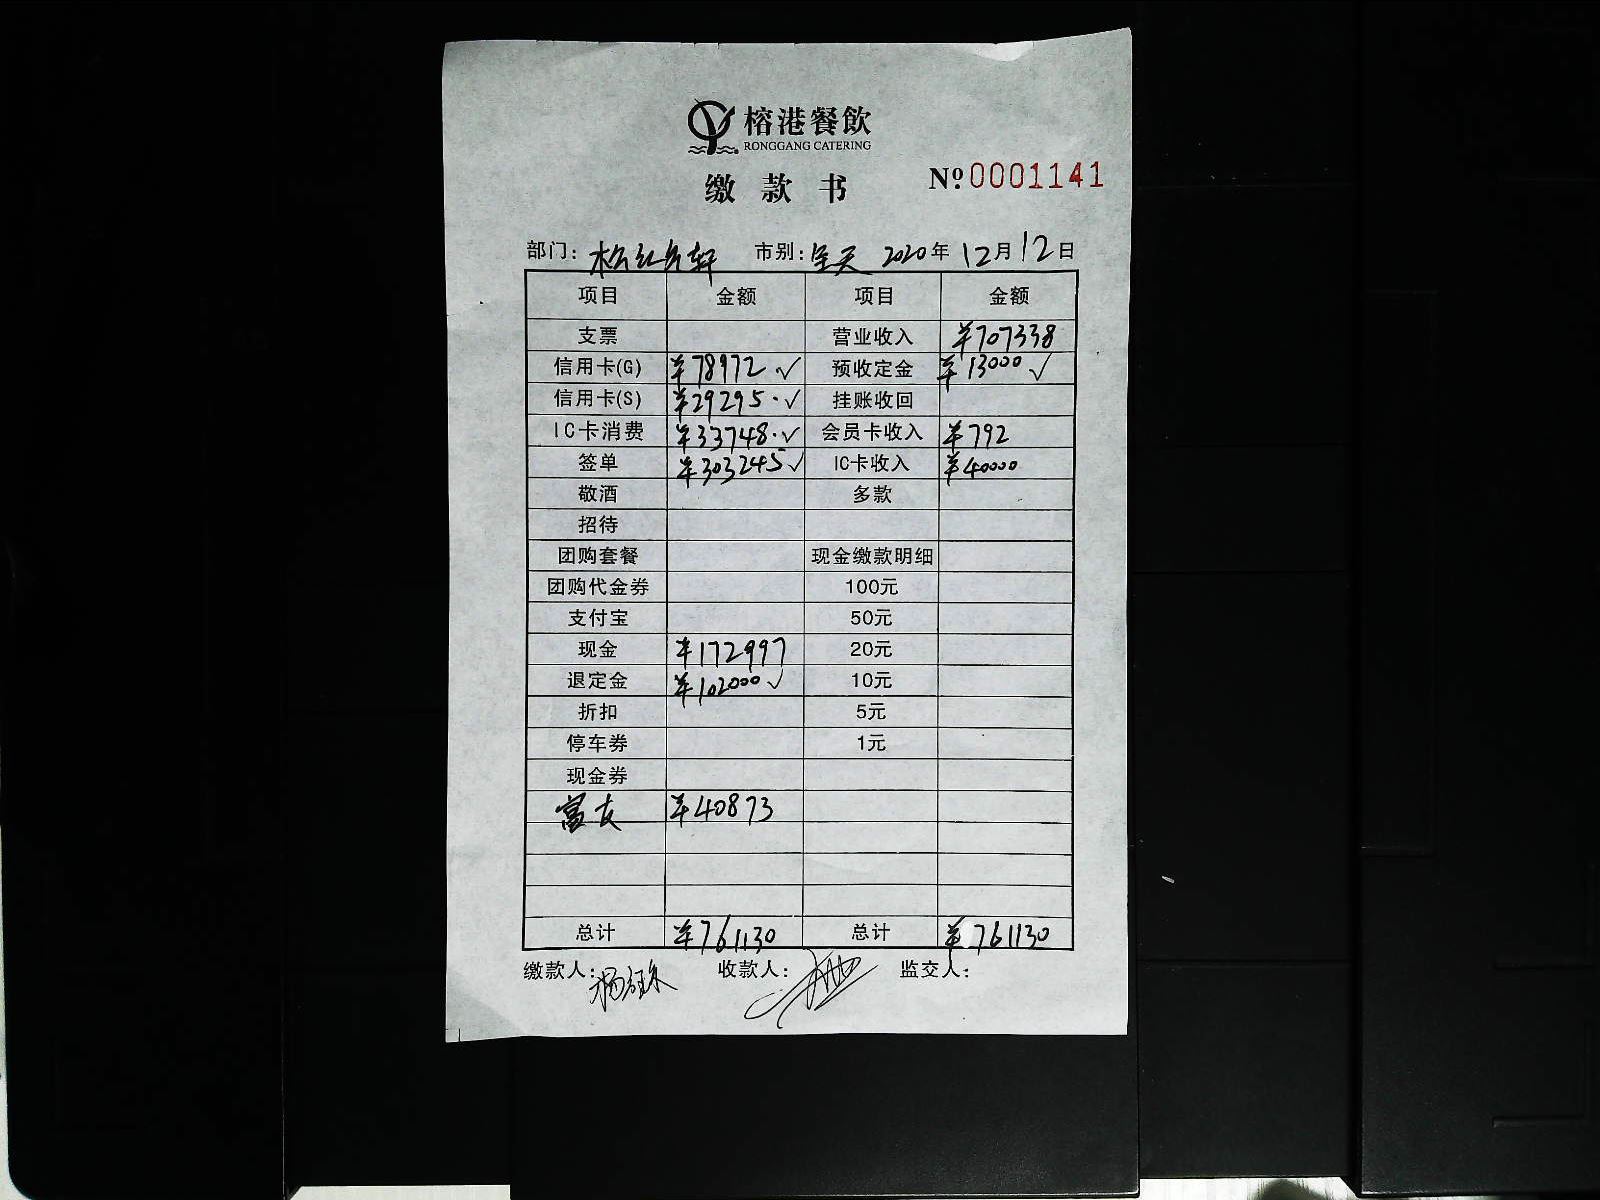 榕港餐飲
RONGGANG CATERING
缴款书 № 0001141
部门: 市别: 全天 2020年12月12日
项目 金额 项目 金额
支票 营业收入 ¥707338
信用卡(G) ¥78972.✓ 预收定金 ¥13000✓
信用卡(S) ¥29295.✓ 挂账收回
IC卡消费 ¥33748.✓ 会员卡收入 ¥792
签单 ¥303245✓ IC卡收入 ¥40000
敬酒 多款
招待
团购套餐 现金缴款明细
团购代金券 100元
支付宝 50元
现金 ¥172997 20元
退定金 ¥102000✓ 10元
折扣 5元
停车券 1元
现金券
富友 ¥40873
总计 ¥761130 总计 ¥761130
缴款人: 收款人: 监交人: